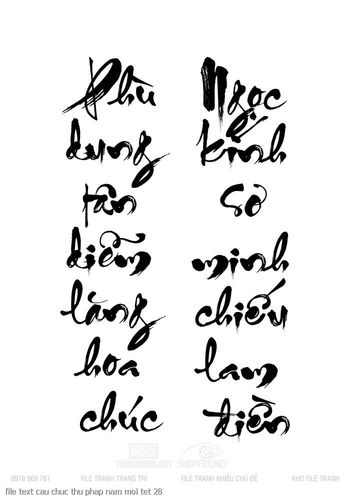 Phù
dung
tân
diễm
lăng
hoa
chúc
Ngọc
kính
sơ
minh
chiếu
lam
điền
FILE TRANH TRANG TRÍ
FILE TRANH NHIỀU CHỦ ĐỀ
KHO FILE TRANH
file text cau chuc thu phap nam moi tet 28